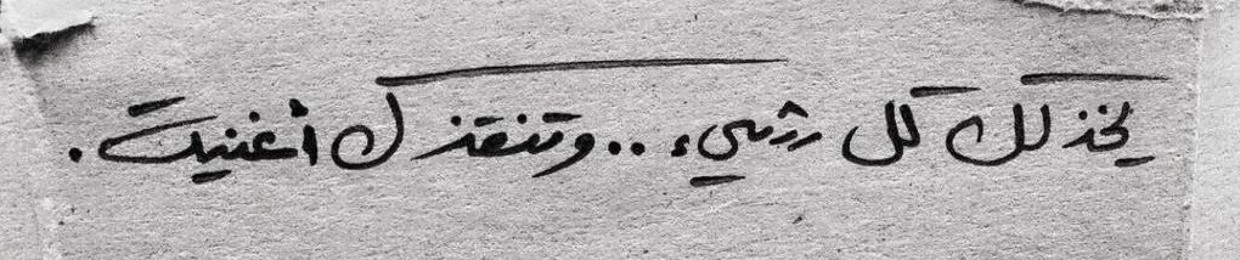 يخذلك كل شيء .. وتنقذك أغنية .